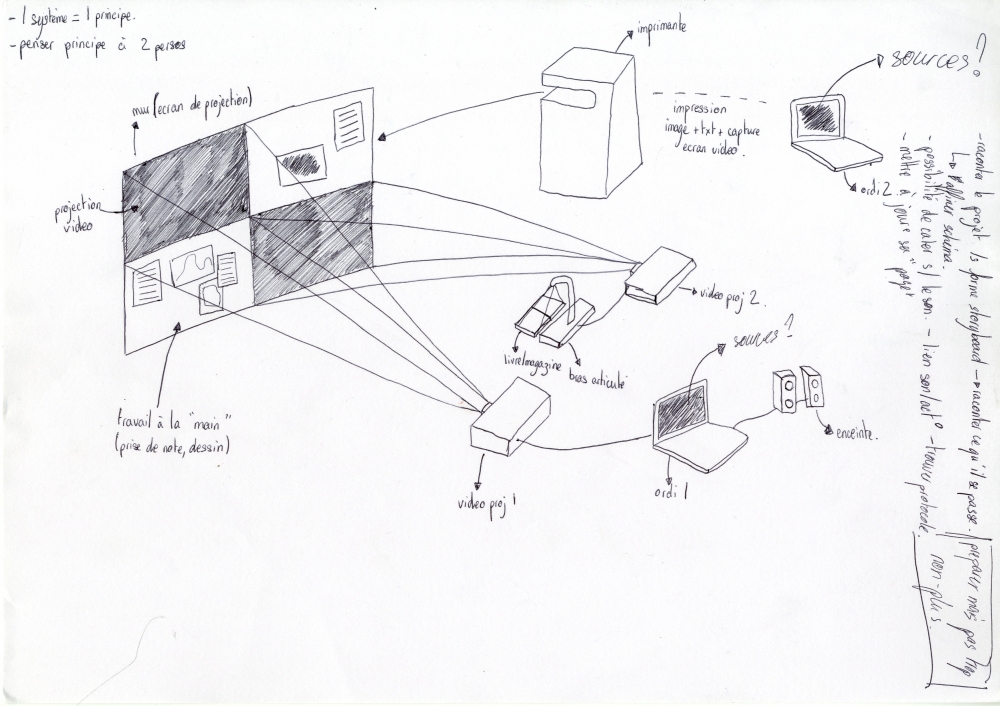 - 1 système = 1 principe.
- penser principe à 2 persos
imprimante
sources?
mur (ecran de projection)
impression
image + txt + capture
ecran video.
ordi 2
projection
video
video proj 2.
livre/magazine
bras articulé
sources?
travail à la "main"
(prise de note, dessin)
enceinte.
ordi 1
video proj 1
- raconter le projet /s forme storyboard → raconter ce qu'il se passe.
↳ raffiner schéma.
- possibilité de caler s/ le son. - lien son/act° - trouver protocole.
- mettre à jour sa "page"
preparer mais pas trop
non-plus.